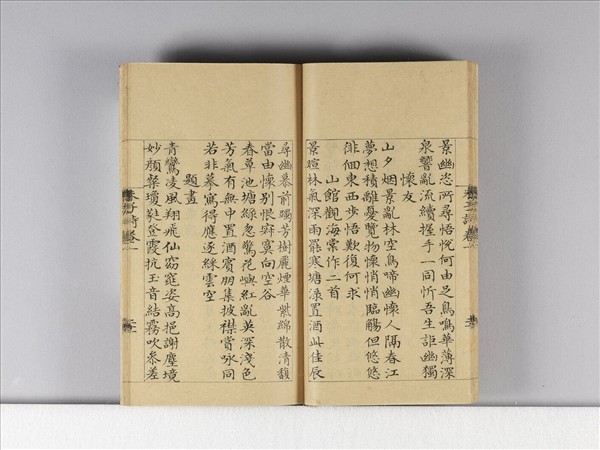 景幽恣所尋悟悅何由足鳥鳴華薄深
泉響亂流續握手一同忻吾生詎幽獨
懷友
山夕烟景亂林空鳥啼幽懷人隔春江
夢想積離憂覽物悽悄悄臨觴但悠悠
徘徊東西步悟歎復何求
山館觀海棠作二首
景暄林氣深雨罷寒塘淥置酒此佳辰
尋幽慕前躅芳樹麗煙華紫綿散清馥
當由懷別恨寂寞向空谷
春草池塘綠忽驚花嶼紅亂英深淺色
芳氣有無中置酒賓朋集披襟賞咏同
若非摹寫得應逐綵雲空
題畫
青鸞凌風翔飛仙窈窕姿高挹謝塵境
妙顏粲瓊蕤登霞抗玉音結霧吹參差